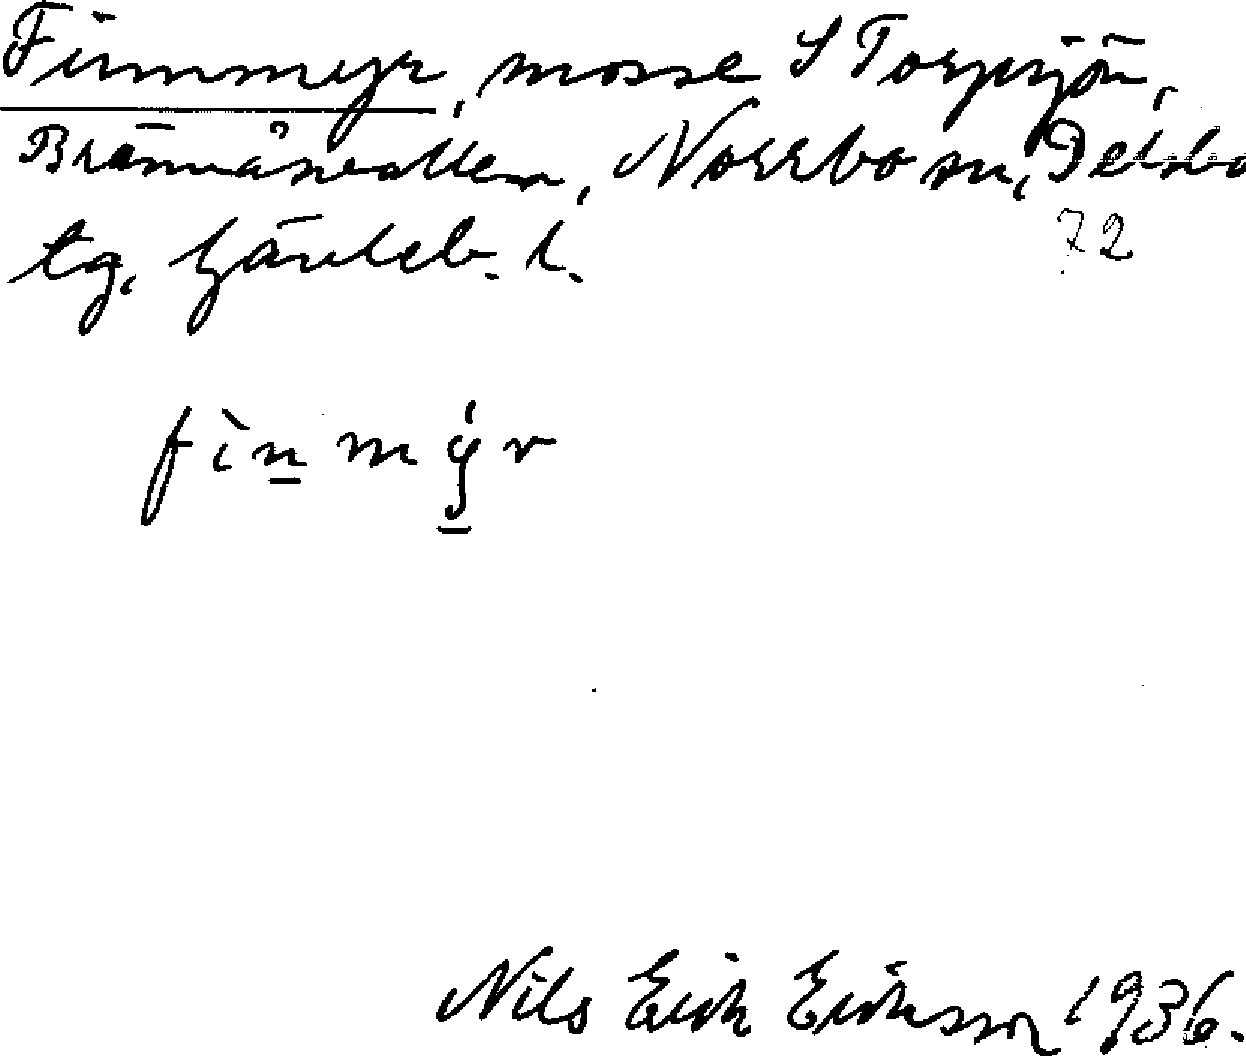 Finnmyr, mosse S Torpsjön,
Brännåsvallen, Norrbo sn, Delsbo
tg, Gävleb. l.
72
fìn̲ mý̲r
Nils Erik Eriksson 1936.